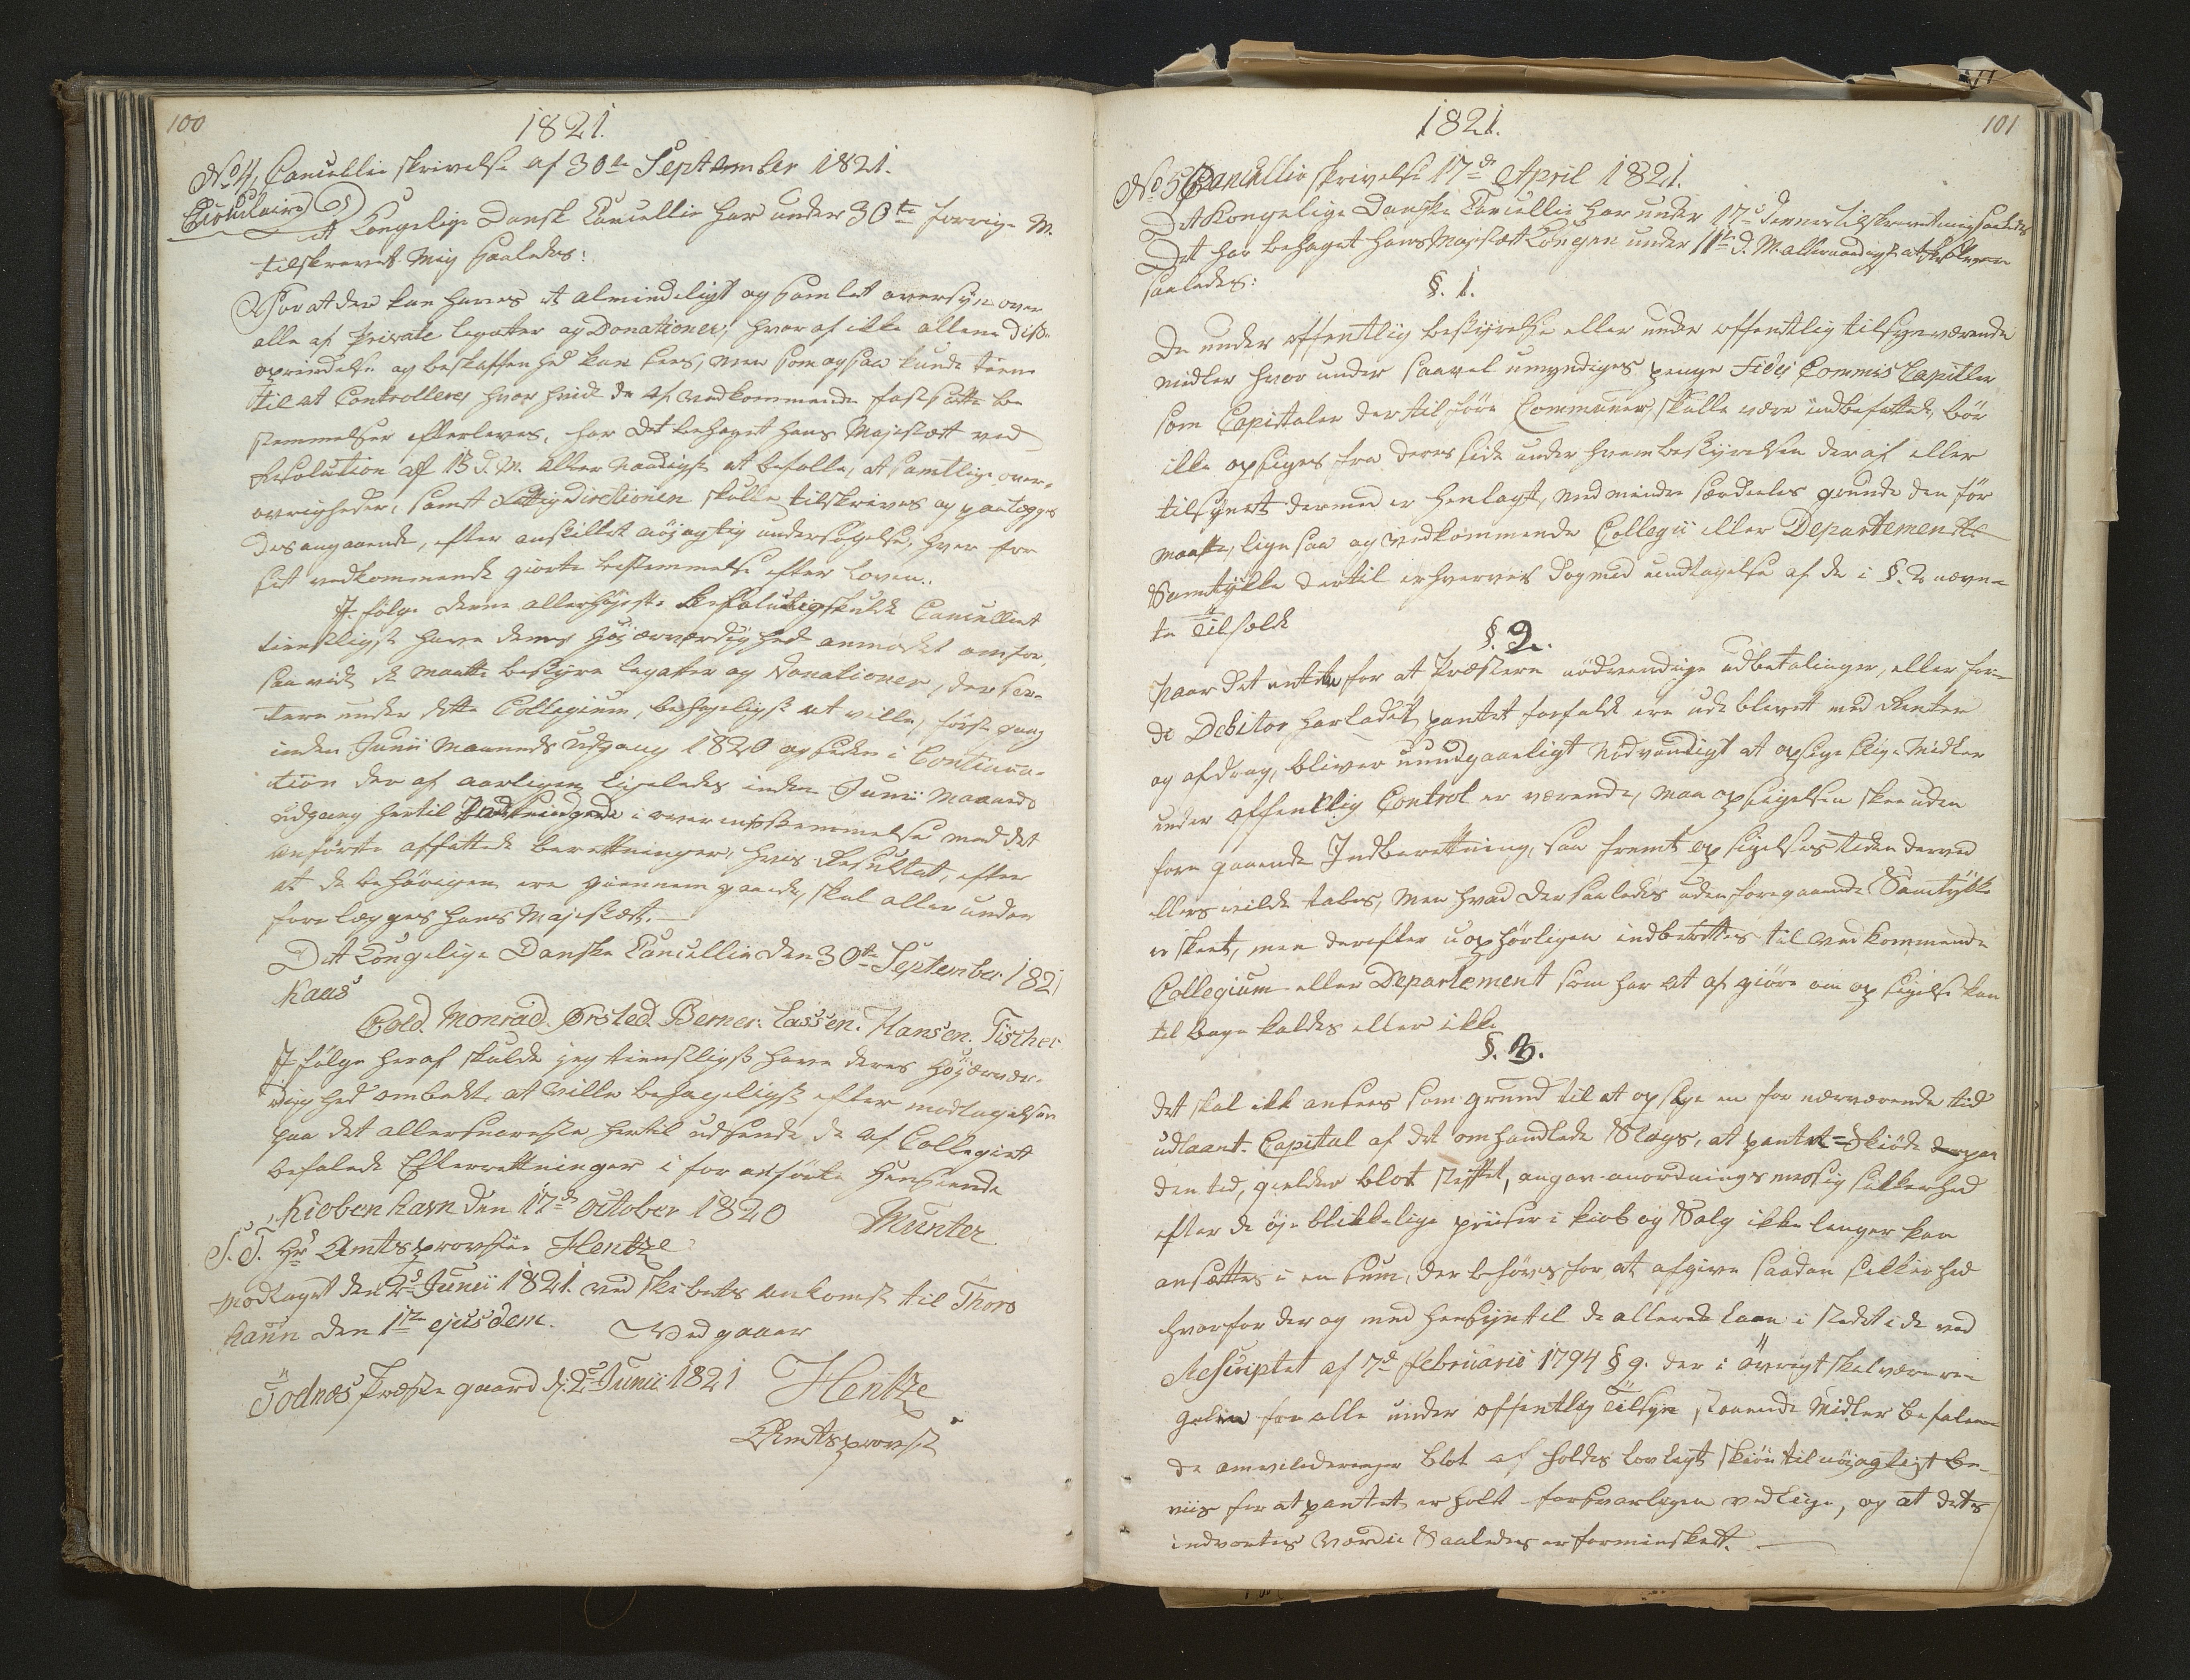 100
1821.
No 4, Cancellie skrivelse af 30te September 1821.
Circulaire
Det Kongelige Dansk Cancellie har under 30te forrige M.
tilskrevet mig saaledes:
For at der kan haves et almindeligt og samlet oversyn over
alle af Private legater og Donationer, hvoraf ikke allene diss.
oprindelse og beskaffenhed kan sees, men som ogsaa kunde tiene
til at Controllere hvorhvidt de af vedkommende fastsatte be
stemmelser efterleves, har det behaget Hans Majestæt ved
Resolution af 13 d. M. allernaadigst at befalle, at samtlige over-
øvrigheder, samt Fattigdirectionen skulle tilskrives og paalegges
desangaaende, efter anstillet nöjagtig undersögelse, hver for
sit vedkommende giorte bestemmelse efter loven..
I fölge denne allerhöjeste Resolution skulde Cancelliet
tienstligst have deres Höjærværdighed anmodet om for,
saavidt de maatte bestyre legatter og Donationer, der sor-
tere under dette Collegium, behageligst at ville, förste gang
inden Junii Maaneds Udgang 1820 og siden i Continua-
tion der af aarligen ligeledes inden Junii Maaneds
udgang hertil indsende i overensstemmelse med det
anförte affattede beretninger, hvis Resultat, efter
at de behörigen ere giennemgaaede, skal aller under
forelægges Hans Majestæt.
Det Kongelige Danske Cancellie den 30te September 1821
Kaas
Cold. Monrad. Ørsted. Berner. Lassen. Hansen. Fischer
I fölge heraf skulde jeg tienstligst have deres Höjærvær-
dighed ombedt, at ville behageligst efter modtagelsen
paa det allersnareste hertil udsende de af Collegiet
befalede Efterretninger i foranförte Henseende
Kiobenhavn den 17de October 1820 Münter
S. T. Hr Amtsprovsten Hentze
Modtaget den 2de Junii 1821. ved skibets ankomst til Thors
haun den 1te ejusdem. Vedgaaer
Todnæs Præstegaard d. 2de Junii 1821 Hentze
Amtsprovst
101
1821.
No 5 Cancellie skrivelse 17de April 1821.
Det Kongelige Danske Cancellie har under 17de dennes tilskrevet mig saaledes
Det har behaget Hans Majestæt Kongen under 11te d. M. allernaadigst at
saaledes:
§. 1.
De under offentlig bestyrelse eller under offentlig tilsyn værende
midler hvor under saavel umyndiges penge Fidei Commis Capitler
som Capitaler der tilhöre Communer, skulle være indbefattet, bör
ikke opsiges fra deres side under hvem bestyrelsen deraf eller
tilsynet dermed er henlagt, med mindre særdeles grunde den för
maatte, ligesaa og vedkommende Collegii eller Departementets
Samtykke dertil erhverves dog med undtagelse af de i §. 2 nævn-
te Tilfælde
§. 2.
Naar det enten for at Præstere nödvendige udbetalinger, eller for-
di Debitor har ladet pantet forfalde ere udeblevet med Renter
og afdrag, bliver uundgaaeligt nödvendigt at opsige slige Midler
under offentlig Control er værende, maa opsigelsen skee uden
foregaaende Indberettning, saafremt opsigelsestiden derved
ellers vilde tabes, men hvad der saaledes uden foregaaende Samtykke
er skeet, maa derefter uophörligen indberettes til vedkommende
Collegium eller Departement som har at afgiöre om opsigelse kan
tilbage kaldes eller ikke
§. 3.
det skal ikke ansees som grund til at opsige en for nærværende tid
udlaant Capital af det omhandlede Slags, at pantet-Skiöde
den tid, gielder blot stiftet, angav anordningsmæssig sikkerhed
efter de öjeblikkelige priiser i kiöb og Salg ikke længer kan
ansættes i en Sum, der behöves for at afgive saadan sikkerhed
hvorfor der og med hensyn til de allerede laan i stedet de ved
Rescriptet af 7de Februarii 1794 § 9. der i övrigt skal være re
gelen for alle under offentlig Tilsyn staaende Midler befalen-
de omvurderinger blot afholdes lovligt skiön til nöjagtigt be-
viis for at pantet er holdt forsvarligen vedlige, og at dets
indvortes Værdie Saaledes er forminsket.